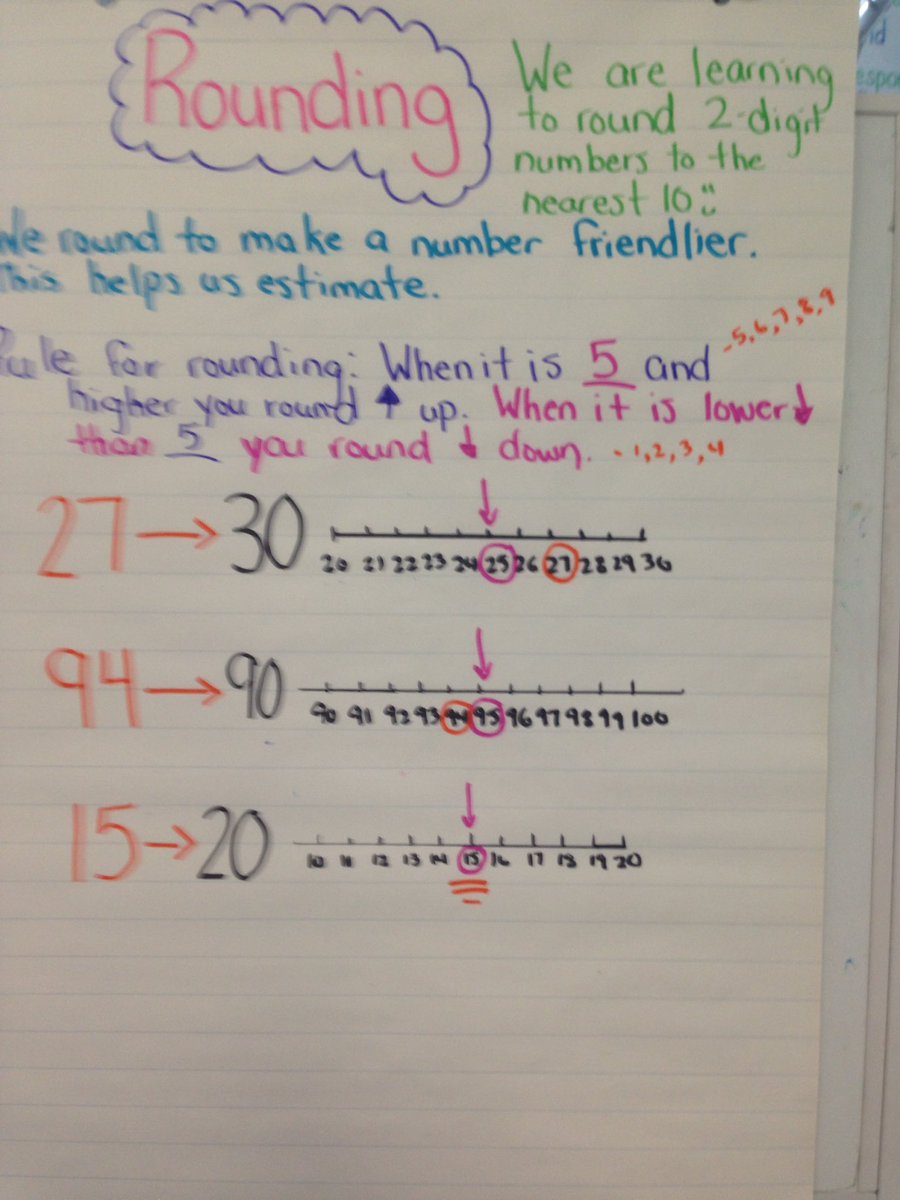 Rounding
We are learning
to round 2-digit
numbers to the
nearest 10
We round to make a number friendlier.
This helps us estimate.
Rule for rounding: When it is 5 and
-5,6,7,8,9
higher you round ↑ up. When it is lower↓
than 5 you round ↓ down. -1,2,3,4
27→30
20 21 22 23 24 25 26 27 28 29 30
94→90
90 91 92 93 94 95 96 97 98 99 100
15→20
10 11 12 13 14 15 16 17 18 19 20